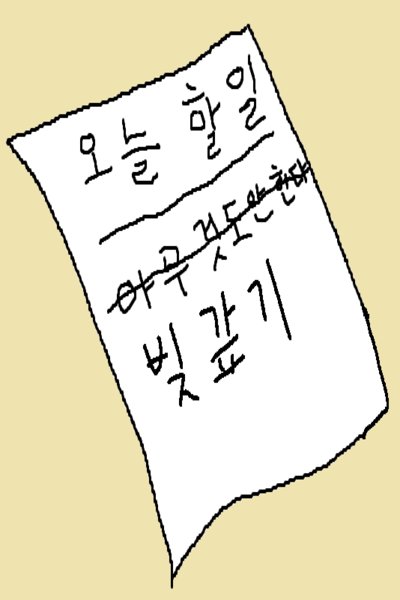 오늘 할 일
아무것도 안 한다
빚 갚기